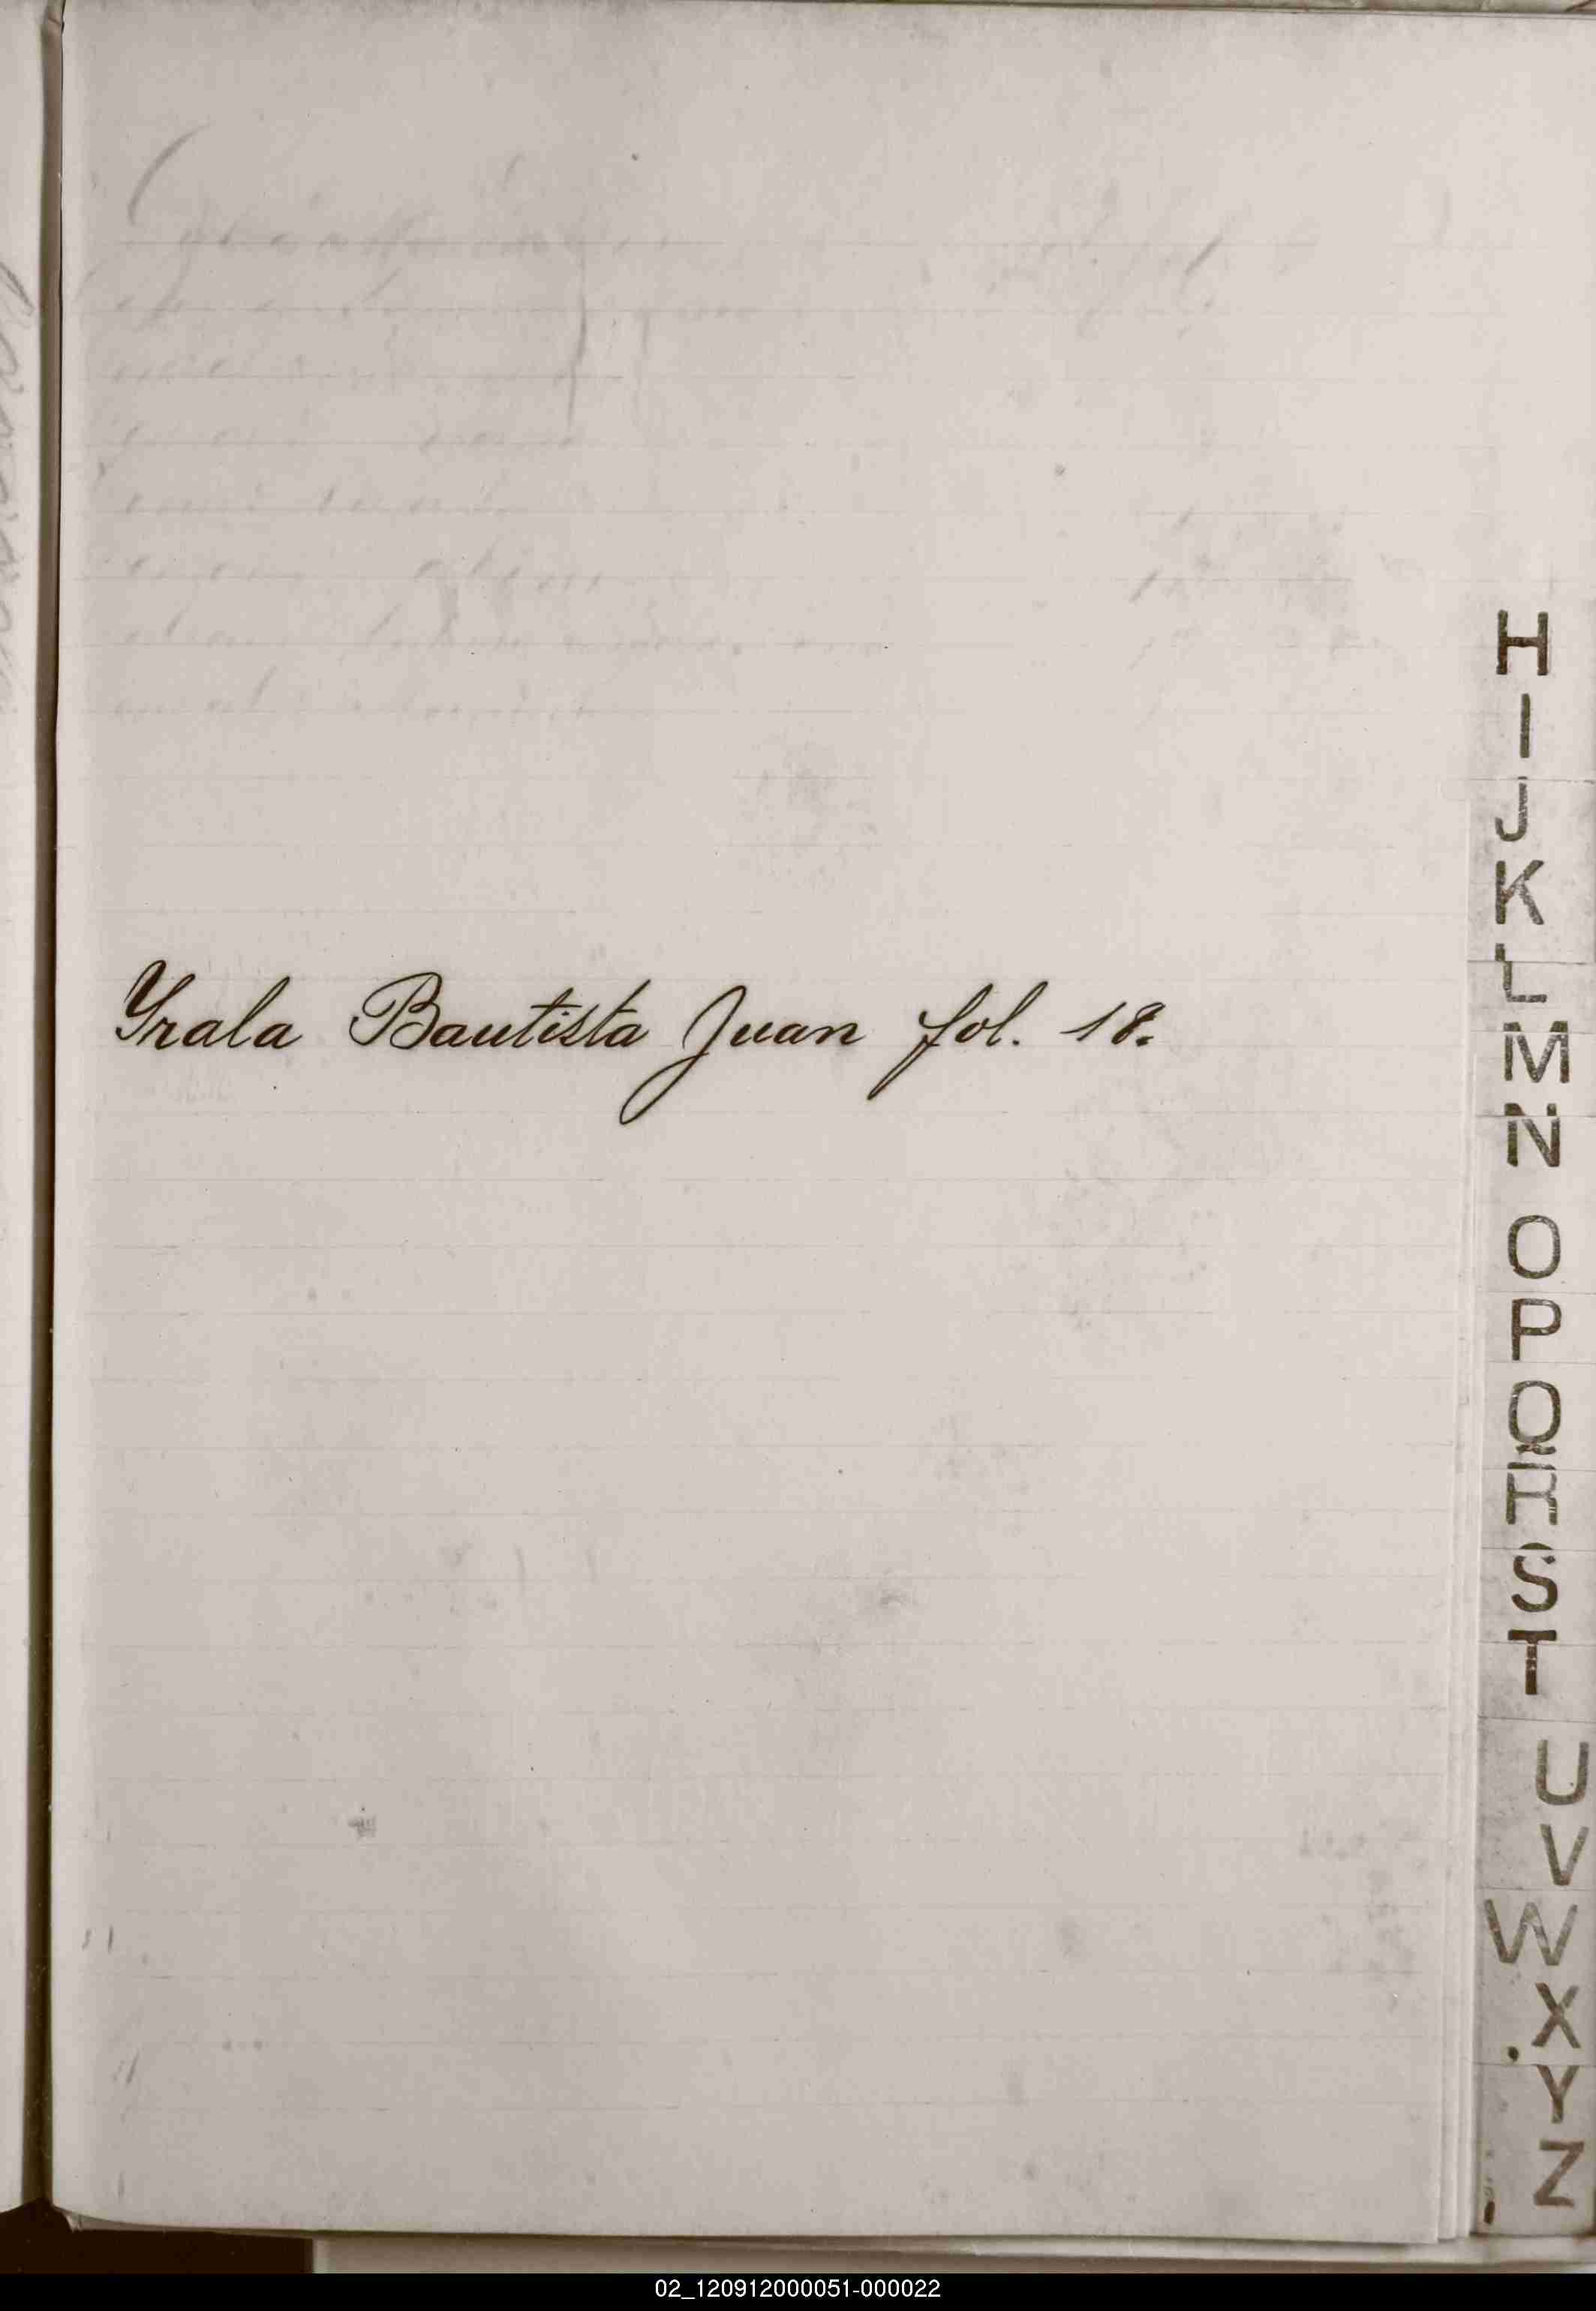 Yrala Bautista Juan fol. 18.
H
I
J
K
L
M
N
O
P
Q
R
S
T
U
V
W
X
Y
Z
02_120912000051-000022